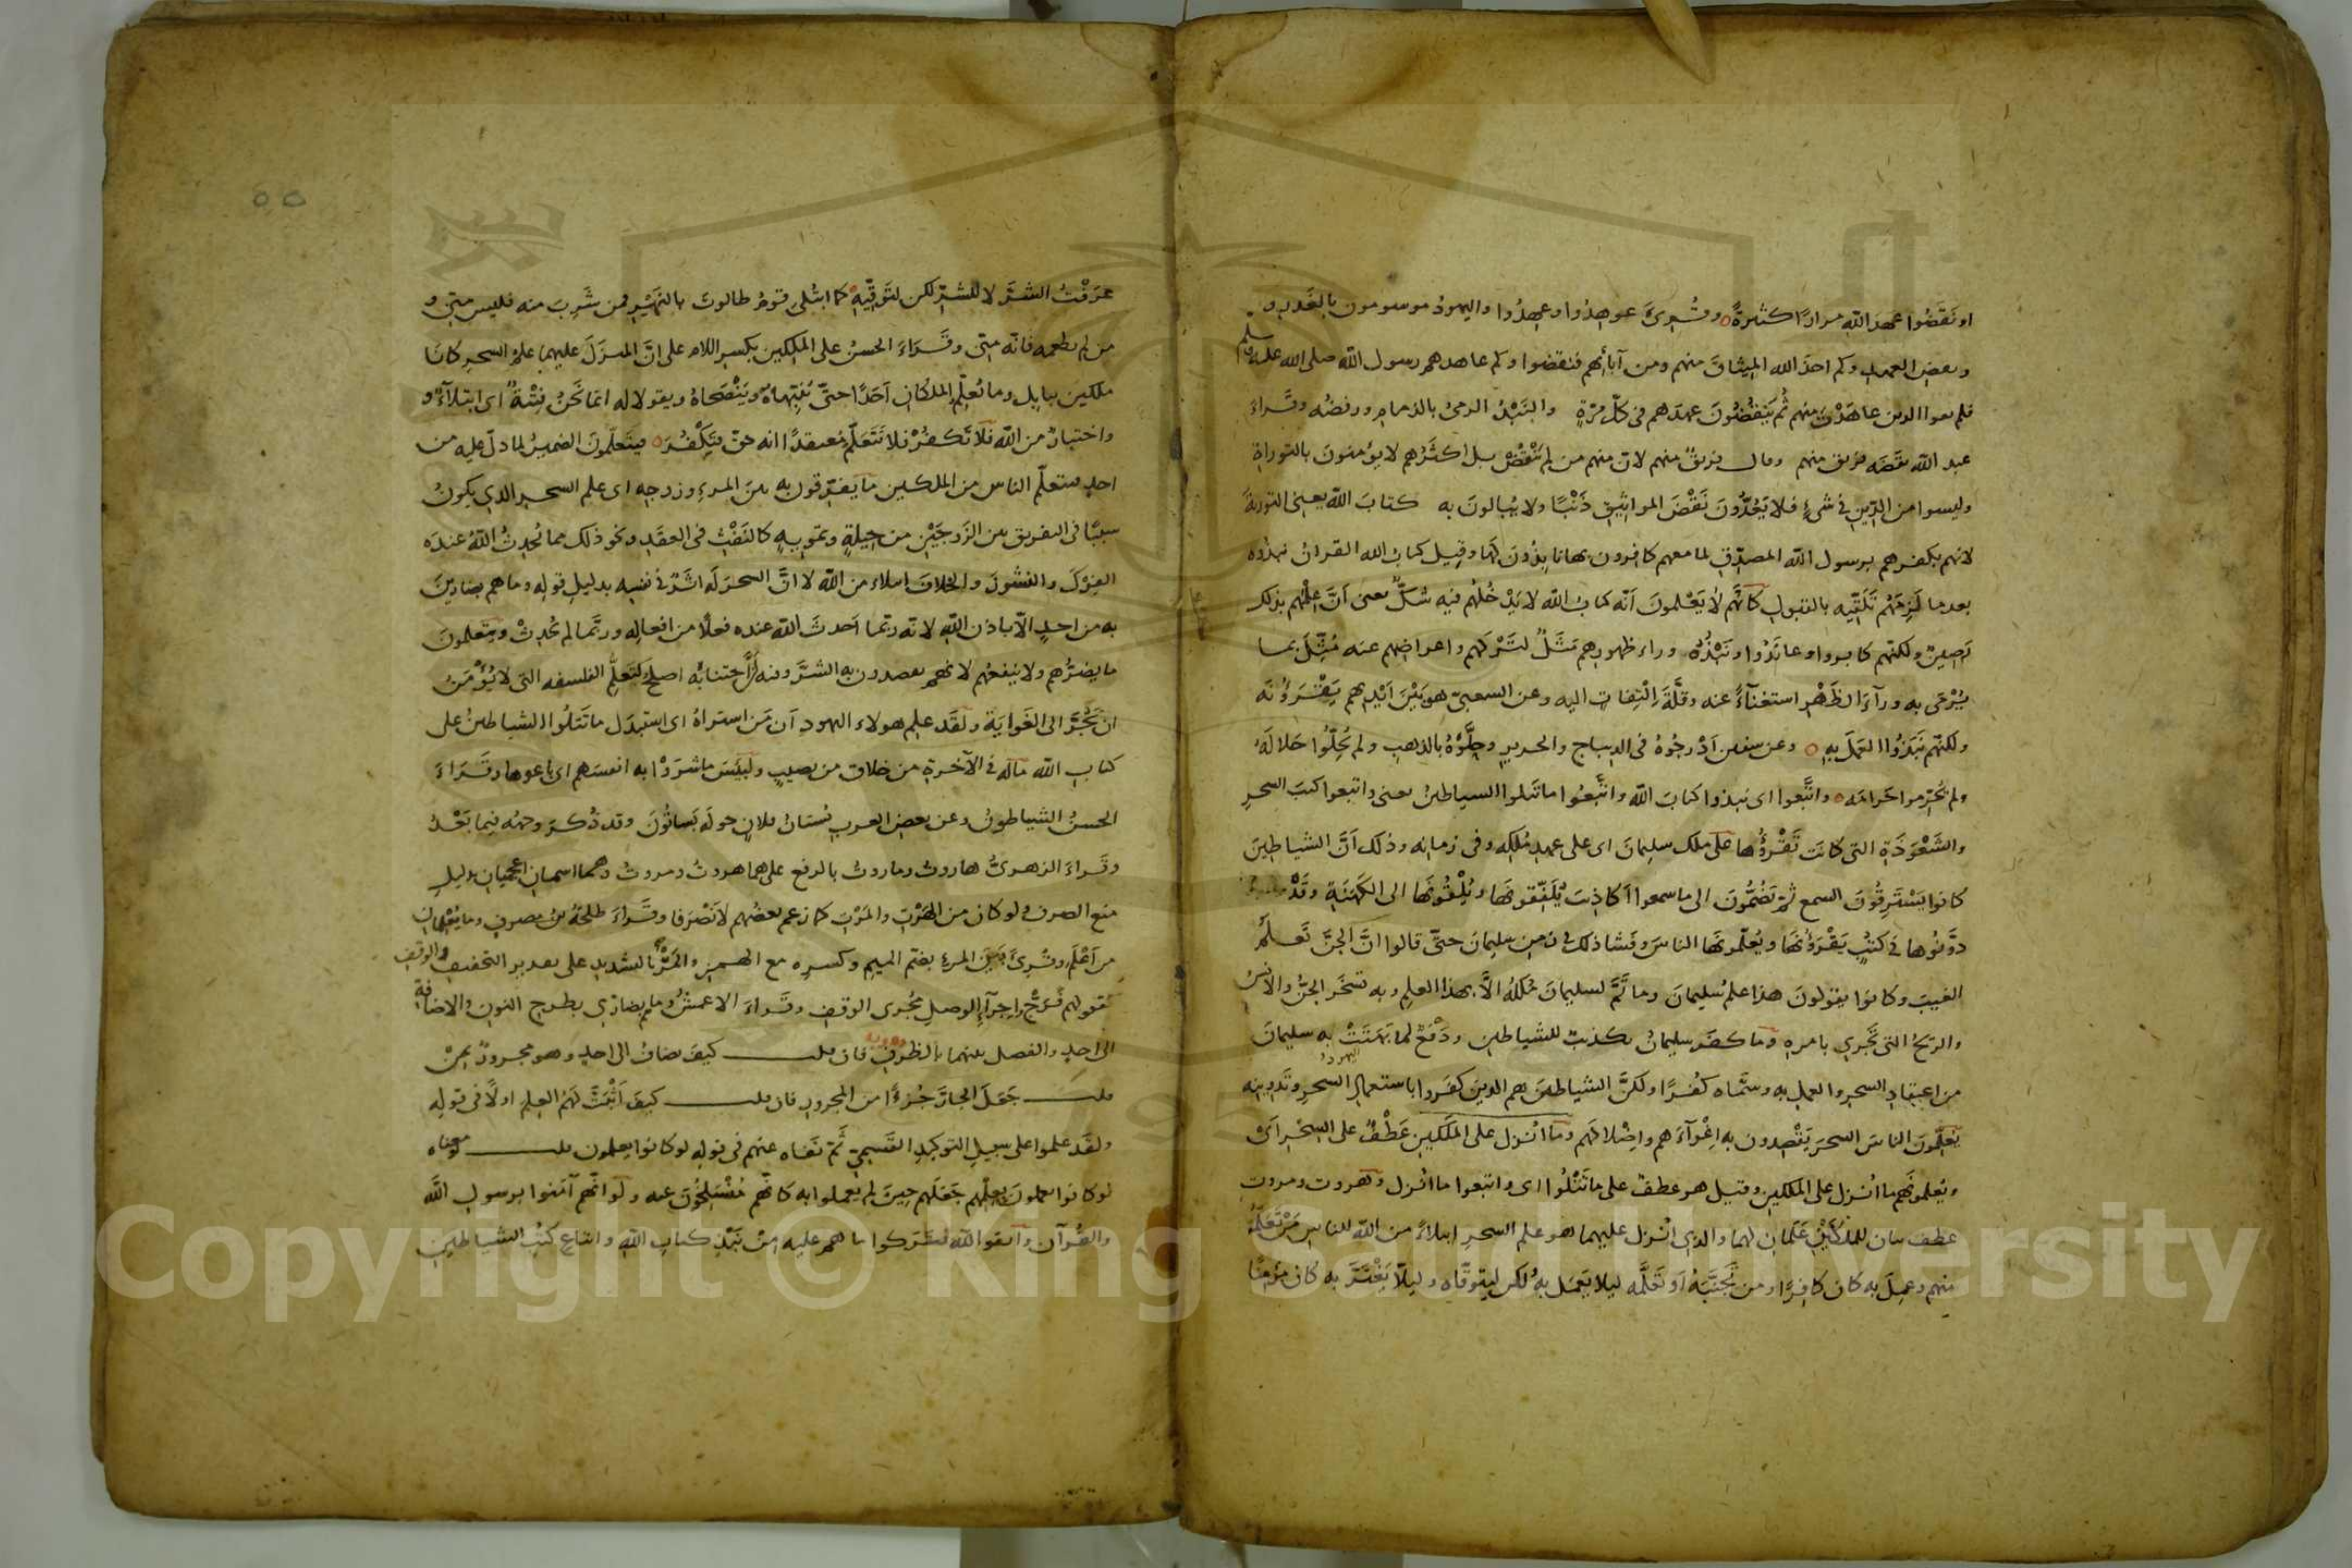 او نَقَضُوا عهدَ الله مرارًا كثيرةً وقُرِئَ عوهِدُوا وعُهِدُوا واليهودُ موسومون بالغَدْرِ
ونقضِ العهد وكم اخذ الله الميثاقَ منهم ومن آبائهم فنقضوا وكم عاهدهم رسول الله صلى الله عليه وسلم
فلم يفوا الذين عاهَدْتَ منهم ثُم يَنْقُضُونَ عهدَهم فى كلّ مرّةٍ والنَبْذُ الرمىُ بالذمام ورفضُه وقَراءَ
عبد الله نقضَه فريق منهم وقال فريقٌ منهم لان منهم من لم يَنْقُضْ بل اكثَرُهم لا يؤمنونَ بالتوراة
وليسوا من الدِّينِ فى شىءٍ فلا يَعُدُّونَ نَقْضَ المواثيقِ ذَنْبًا ولا يُبالونَ به كتابَ الله يعنى التورية
لانهم بكفرهم برسول الله المصدّقِ لما معهم كافرون بها نابِذُونَ لَها وقيل كتاب الله القرانُ نبذوه
بعدما لَزِمَهُم تَلَقّيه بالقبول كانّهم لا يَعْلمونَ اَنّه كتاب الله لا يَدْخُلُهم فيه شكٌّ يعنى اَنَّ عِلْمَهم بذلك
رَصِينٌ ولكنّهم كابروا وعانَدُوا ونَبَذُوه وراء ظهورهم مَثَلٌ لتَرْكهم واعراضِهم عنه مُثِّلَ بما
يُرْمَى به ورآءَ الظَهْرِ استغنآءً عنه وقلَّةَ اِلْتِفاتٍ اليه وعن الشعبىّ هو بَيْنَ اَيْديهم يَقْرَؤُنَه
ولكنّهم نَبَذُوا العَمَلَ به وعن سفين اَدْرجُوهُ فى الديباج والحرير وحلَّوْهُ بالذهب ولم يُحِلّوا حَلالَهُ
ولم يُحَرِّموا حَرامَه واتَّبعوا اى نبذوا كتابَ الله واتَّبعُوا ما تَتلوا الشياطينُ يعنى واتبعوا كتبَ السحرِ
والشَعْوَذَةِ التى كانَت تَقْرَؤُها على ملك سليمانَ اى على عهدِ مُلكِه وفى زمانِه وذلك اَنَّ الشياطينَ
كانوا يَسْتَرِقُونَ السمع ثُمّ يَضُمُّونَ الى ما سمعوا اَكاذِيبَ يُلَفِّقونَها ويُلْقُونَها الى الكَهَنَةِ وقَدْ
دوَّنُوها فى كتبٍ يَقْرَؤنَها ويُعلّمونَها الناسَ وفشا ذلك فى زمن سليمانَ حتّى قالوا انَّ الجنَّ تَعلَمُ
الغيبَ وكانوا يقولونَ هذا علمُ سُليمانَ وما تَمَّ لسليمانَ مُلكُهُ الّا بهذا العلمِ وبه تسخَّر الجنُّ والانسُ
والريحُ التى تَجرِى بامره وما كفَر سليمانُ تكذيبٌ للشياطين ودَفْعٌ لما بَهَتَتْ به سليمانَ
من اعتقادِ السحرِ والعملِ به وسمّاه كفرًا ولكنَّ الشياطينَ هم الذين كفروا باستعمالِ السحرِ وتَدوينِه
يُعلّمونَ الناسَ السحرَ يَقْصِدون به اِغْوآءَهم واِضْلالَهم وما اُنزل على المَلَكينِ عَطْفٌ على السِحْرِ اَىْ
ويُعلّمونَهم ما اُنزل على الملكينِ وقيل هو عطفٌ على ما تَتْلُوا اى واتبعوا ما اُنزل وهروت ومروت
عطف بيان للملَكَيْنِ عَلَمانِ لهما والذى اُنْزل عليهما هو علم السحرِ ابتلاءً من الله للناسِ مَنْ تَعَلَّمَهُ
منهم وعمِلَ به كان كافرًا ومن تَجَنَّبَهُ اَوْ تَعَلَّمَه ليلا يَعْمَل به ولكن ليتوقّاه وليلّا يَغْتَرَّ به كان مُؤمِنًا
عرَفْتُ الشرَّ لا للشرّ لكن لتَوَقّيهِ كما ابتُلِى قومُ طالوتَ بالنَهَرِ فمن شَرِبَ منه فليس منّى و
من لم يطعمه فانّه منّى وقَراءَ الحسنُ على المَلِكينِ بكسرِ اللام على انَّ المنزَلَ عليهما علمُ السحرِ كانا
ملكينِ ببابِل وما يُعلّم الملكانِ اَحَدًا حتّى يُنَبِّهاهُ ويَنْصَحاهُ ويقولا له انما نَحْنُ فِتْنةٌ اى ابتلآءٌ و
واختبارٌ من الله فلا تَكفُرْ فلا تَتَعَلَّمْ معتقِدًا انه حقّ فتَكْفُرَ فيتَعلّمونَ الضميرُ لما دلّ عليه من
احدٍ اى فيتعلّم الناس من الملكين ما يُفرّقون به بين المرءِ وزوجِه اى علم السحرِ الذى يكونُ
سببًا فى التفريق بين الزَوجَيْنِ من حِيلةٍ وتمويهٍ كالنَفْثِ فى العقَدِ ونحو ذلك مما يُحدِثُ اللّهُ عندَه
الفِرْكَ والنشوزَ والخلافَ ابتلاء من الله لا انَّ السحرَ لَه اثَرٌ فى نفسِه بدليلِ قوله وما هم بضارّينَ
به من احدٍ الّا باذن اللّهِ لانّه ربّما اَحدثَ اللّه عنده فعلًا من افعالِه وربَّما لم يُحدِثْ ويتعلمونَ
ما يضرُّهم ولا ينفعُهم لانهم يقصدون به الشرَّ وفيه اَنَّ اجتنابَه اصلحُ كتَعلُّمِ الفلسفه التى لا يُؤْمَنُ
ان تَجُرَّ الى الغَوايَة ولقد علِم هولاء اليهود اَن مَن اشتراهُ اى استبدَل ما تَتلُوا الشياطينُ على
كتابِ الله ماله فى الآخرةِ من خلاق من نصيبٍ ولبئسَ ماشرَوْا به انفسَهم اى باعوها وقَراءَ
الحسنُ الشياطونُ وعن بعضِ العربِ بُستانُ فلانٍ حولَه بَساتُونَ وقد ذُكرَ وجهُه فيما بَعْدُ
وقَراءَ الزهرىُّ هاروتُ وماروتُ بالرفعِ على هما هروتُ ومروتُ وهما اسمانِ اعجميّانِ بدليلِ
منعِ الصرفِ ولو كان من الهَرْتِ والمَرْتِ كما زعم بعضُهم لانْصَرَفا وقَراءَ طلحةُ بنُ مصرفٍ وما يُعْلِمانِ
من اَعْلَمَ وقُرِئَ بَيْنَ المرءِ بضم الميم وكسرِه مع الهمزِ والمَرِّ بالتشديدِ على تقدير التخفيفِ والوقفِ
كقولِهم فَرَجّ واِجرآءِ الوصلِ مُجْرَى الوقفِ وقَراءَ الاعمشُ وما هم بضارّى بطرحِ النونِ والاضافةِ
الى احدٍ والفصل بينهما بالظرفِ فان قلت كيفَ يضافُ الى احدٍ وهو مجرورٌ بمِنْ
قلت جَعَلَ الجارَّ جُزءًا من المجرورِ فان قلت كيف اَثْبَتَ لَهُمُ العِلم اولًا فى قولِه
ولقد علموا على سبيلِ التوكيدِ القَسَمِىِّ ثُمّ نَفاه عنهم فى قولِه لو كانوا يعلمون قلت معناه
لو كانوا يعملونَ بعِلْمِهم جَعَلَهم حِينَ لم يعملوا به كانّهم مُنْسَلِخُونَ عنه ولَوْ انّهم آمَنوا برسولِ اللّه
والقُرآن واتقوا اللّه فتركوا ما هم عليه مِنْ نَبْذِ كتابِ اللّهِ واتباعِ كتُبِ الشياطينِ
٥٥
Copyright © King Saud University